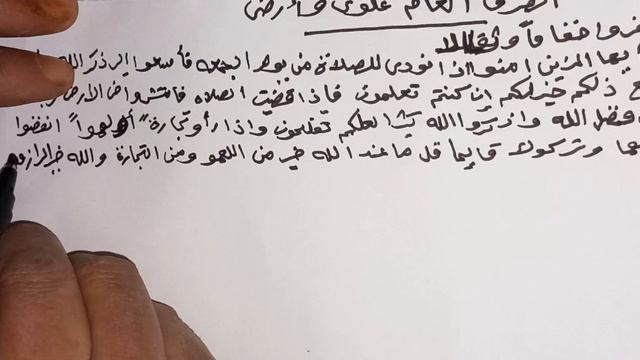 الصرف العام علوى وأرضى
انفروا خفافاً وثقالا
يأيها الذين امنوا اذا نودى للصلاة من يوم الجمعه فأسعوا الى ذكر الله
ذلكم خير لكم إن كنتم تعلمون فاذا قضيت الصلاه فانتشروا فى الارض
فضل الله واذكروا الله كثيرا لعلكم تفلحون واذا رأو تجارة" أو لهوا" انفضوا
وتركوك قايما قل ما عند الله خير من اللهو ومن التجارة والله خير الرازقين